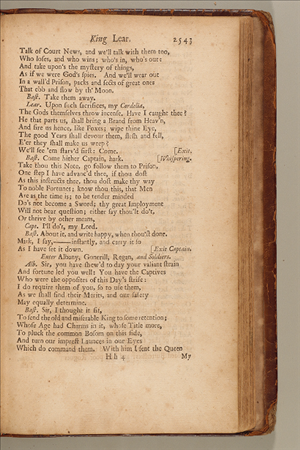 King Lear. 2543
Talk of Court News, and we'll talk with them too,
Who loses, and who wins; who's in, who's out:
And take upon's the mystery of things,
As if we were God's spies. And we'll wear out
In a wall'd Prison, packs and sects of great ones
That ebb and flow by th' Moon.
Bast. Take them away.
Lear. Upon such sacrifices, my Cordelia,
The Gods themselves throw incense. Have I caught thee?
He that parts us, shall bring a Brand from Heav'n,
And fire us hence, like Foxes; wipe thine Eye,
The good Years shall devour them, flesh and fell,
E'er they shall make us weep?
We'll see 'em starv'd first: Come. [Exit.
Bast. Come hither Captain, hark. [Whispering.
Take thou this Note, go follow them to Prison,
One step I have advanc'd thee, if thou dost
As this instructs thee, thou dost make thy way
To noble Fortunes; know thou this, that Men
Are as the time is; to be tender minded
Do's not become a Sword; thy great Imployment
Will not bear question; either say thou'lt do't,
Or thrive by other means.
Capt. I'll do't, my Lord.
Bast. About it, and write happy, when thou'st done.
Mark, I say,——instantly, and carry it so
As I have set it down. Exit Captain.
Enter Albany, Gonerill, Regan, and Soldiers.
Alb. Sir, you have shew'd to day your valiant strain
And fortune led you well: You have the Captives
Who were the opposites of this Day's strife:
I do require them of you, so to use them,
As we shall find their Merits, and our safety
May equally determine.
Bast. Sir, I thought it fit,
To send the old and miserable King to some retention;
Whose Age had Charms in it, whose Title more,
To pluck the common Bosom on this side,
And turn our imprest Launces in our Eyes
Which do command them. With him I sent the Queen
H h 4 My